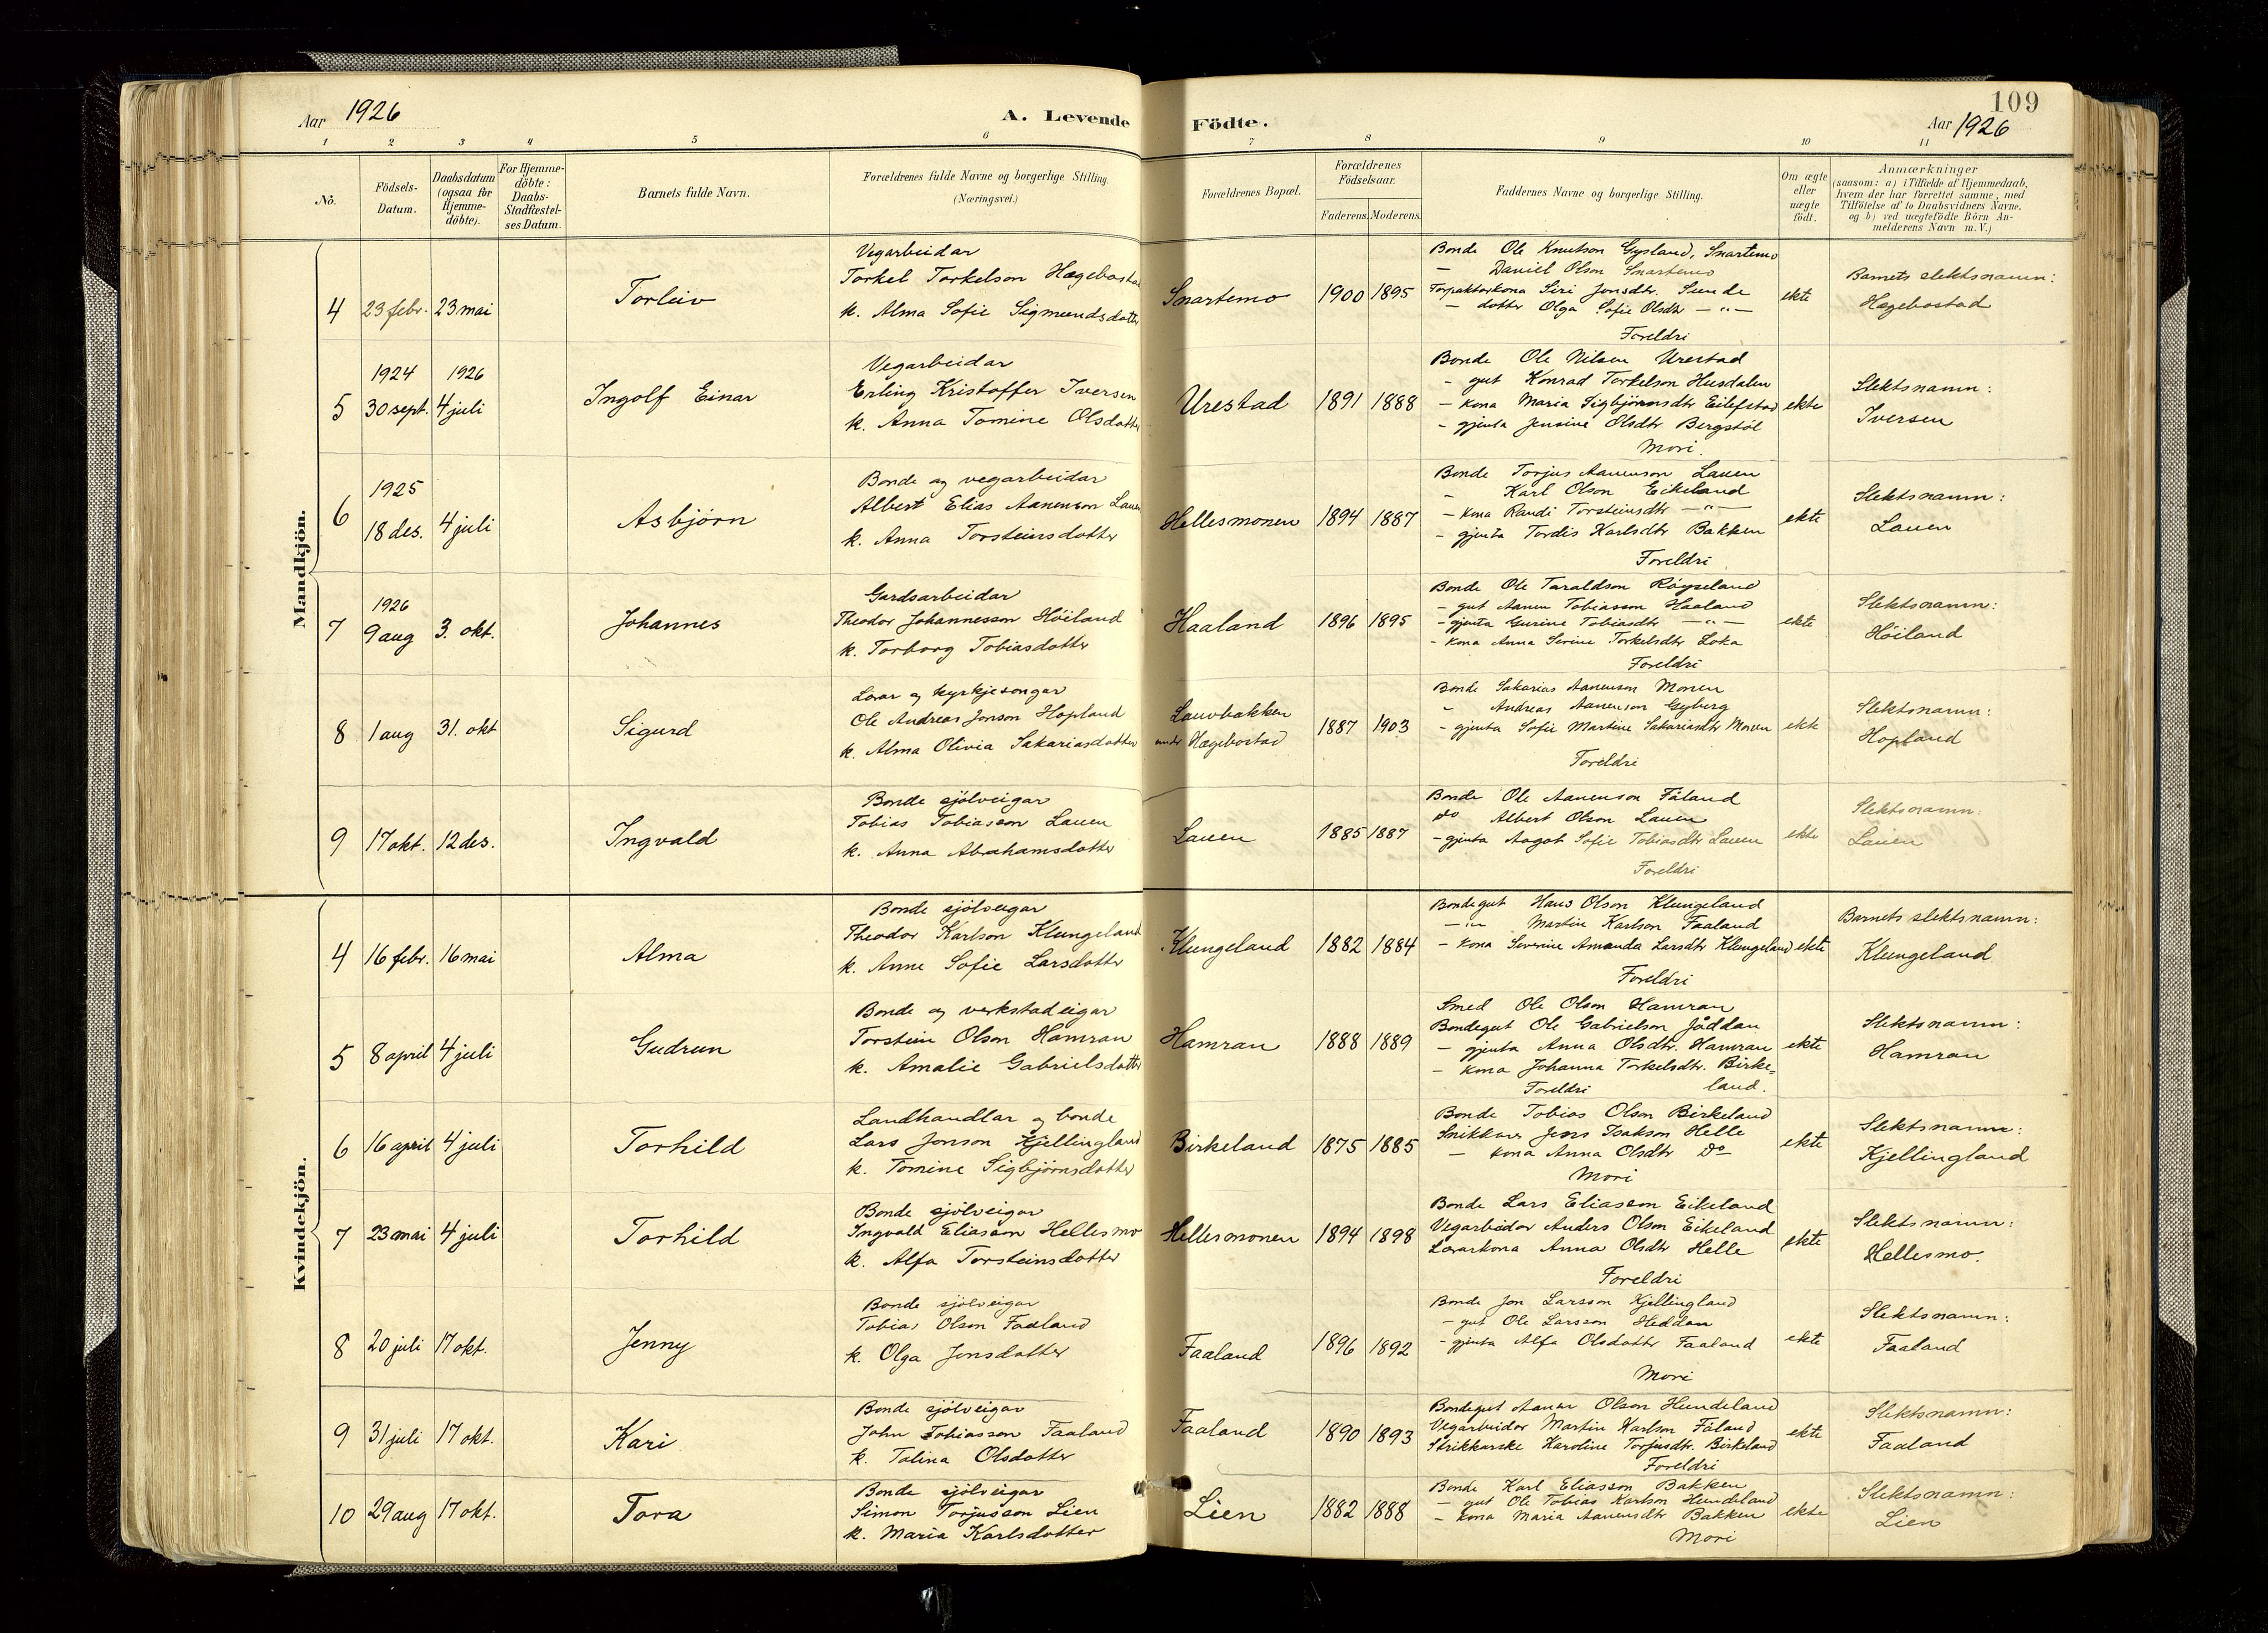 Aar 1926
A. Levende
Födte.
109
Aar 1926
1 2 3 4 5 6 7 8 9 10 11
No.
Födsels-Datum.
Daabsdatum (ogsaa for Hjemme-döbte).
For Hjemme-döbte: Daabs-Stadfæstel-ses Datum.
Barnets fulde Navn.
Forældrenes fulde Navne og borgerlige Stilling. (Næringsvei.)
Forældrenes Bopæl.
Forældrenes Födselsaar.
Faderens. Moderens.
Faddernes Navne og borgerlige Stilling.
Om ægte eller uægte födt.
Anmærkninger
(saasom: a) i Tilfælde af Hjemmedaab,
hvem der har forrettet samme, med
Tilföielse af to Daabsvidners Navne.
og b) ved uægtefödte Börn An-
melderens Navn m. V.)
Mandkjön.
4 23 febr. 23 mai
Torleiv
Vegarbeidar
Torkel Torkelson Hægebostad
k. Alma Sofie Sigmundsdotter
Snartemo 1900 1895
Bonde Ole Knutson Gysland, Snartemo
— Daniel Olson Snartemo
Siri Jonsdtr. Sunde
— dotter Olga Sofie Olsdtr — " —
Foreldri
ekte
Barnets slektsnamn:
Hægebostad
1924 1926
5 30 sept. 4 juli
Ingolf Einar
Vegarbeidar
Erling Kristoffer Iversen
k. Anna Tomine Olsdotter
Urestad 1891 1888
Bonde Ole Nilsen Urestad
- gut Konrad Torkelson Husdalen
- kona Maria Sigbjørnsdtr Eilefstad
- gjenta Jensine Olsdtr Bergstöl
Mori.
ekte
Slektsnamn:
Iversen
1925
6 18 des. 4 juli
Asbjörn
Bonde og vegarbeidar
Albert Elias Aanenson Lauen
k. Anna Torsteinsdotter
Hellesmonen 1894 1887
Bonde Torjus Aanenson Lauen
- Karl Olson Eikeland
- kona Randi Torsteinsdtr — " —
- gjenta Tordis Karlsdtr Bakken
Foreldri
ekte
Slektsnamn:
Lauen
1926
7 9 aug 3. okt.
Johannes
Gardsarbeidar
Theodor Johannesson Höiland
k. Torborg Tobiasdotter
Haaland 1896 1895
Bonde Ole Taraldson Röyseland
- gut Aanen Tobiasson Haaland
- gjenta Gurine Tobiasdtr — " —
- kona Anna Serine Torkelsdtr Loka
Foreldri
ekte
Slektsnamn:
Höiland
8 1 aug 31. okt
Sigurd
Lærar og kyrkjesongar
Ole Andreas Jonson Hopland
k. Alma Olivia Sakariasdotter
Lauvbakken
under Hægebostad
1887 1903
Bonde Sakarias Aanenson Monen
" Andreas Aanenson Gyberg
- gjenta Sofie Martine Sakariasdtr Monen
Foreldri
ekte
Slektsnamn:
Hopland
9 17 okt. 12 des.
Ingvald
Bonde sjölveigar
Tobias Tobiasson Lauen
k. Anna Abrahamsdotter
Lauen 1885 1887
Bonde Ole Aanenson Fåland
do Albert Olson Lauen
- gjenta Aagot Sofie Tobiasdtr Lauen
Foreldri
ekte
Slektsnamn:
Lauen
Kvindekjön.
4 16 febr. 16 mai
Alma
Bonde sjölveigar
Theodor Karlson Klungeland
k. Anne Sofie Larsdotter
Klungeland 1882 1884
Bondegut Hans Olson Klungeland
— " — Martin Karlson Faaland
- kona Severine Amanda Larsdtr Klungeland
Foreldri
ekte
Barnets slektsnamn:
Klungeland
5 8 april 4 juli
Gudrun
Bonde og verkstadeigar
Torstein Olson Hamran
k. Amalie Gabrielsdotter
Hamran 1888 1889
Smed Ole Olson Hamran
Bondegut Ole Gabrielson Jåddan
- gjenta Anna Olsdtr. Hamran
- kona Johanna Torkelsdtr. Birke-
Foreldri land.
ekte
Slektsnamn:
Hamran
6 16 april 4 juli
Torhild
Landhandlar og bonde
Lars Jonson Kjellingland
k. Tomine Sigbjörnsdotter
Birkeland 1875 1885
Bonde Tobias Olson Birkeland
Snikkar Jens Isakson Helle
— kona Anna Olsdtr Do
Mori
ekte
Slektsnamn:
Kjellingland
7 23 mai 4 juli
Torhild
Bonde sjölveigar
Ingvald Eliasson Hellesmo
k. Alfa Torsteinsdotter
Hellesmonen 1894 1898
Bonde Lars Eliasson Eikeland
Vegarbeidar Anders Olson Eikeland
Lærarkona Anna Olsdtr Helle
Foreldri
ekte
Slektsnamn:
Hellesmo.
8 20 juli 17 okt.
Jenny
Bonde sjölveigar
Tobias Olson Faaland
k. Olga Jonsdotter
Faaland 1896 1892
Bonde Jon Larsson Kjellingland
- gut Ole Larsson Heddan
- gjenta Alfa Olsdotter Faaland
Mori
ekte
Slektsnamn:
Faaland
9 31 juli 17 okt.
Kari
Bonde sjölveigar
John Tobiasson Faaland
k. Talina Olsdotter
Faaland 1890 1893
Bondegut Olson Hundeland
Vegarbeidar Martin Karlson Fåland
Strikkarske Karoline Torjusdtr. Birkeland
Foreldri
ekte
Slektsnamn:
Faaland
10 29 aug 17 okt.
Tora
Bonde sjölveigar
Simon Torjusson Lien
k. Maria Karlsdotter
Lien 1882 1888
Bonde Karl Eliasson Bakken
- gut Ole Tobias Karlson Hundeland
- kona Maria Aanensdtr Bakken
Mori
ekte
Slektsnamn:
Lien